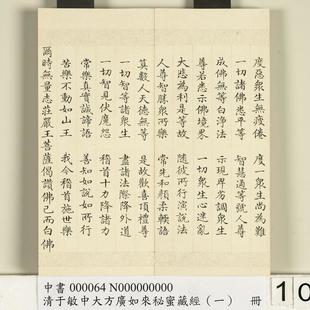 度惡衆生無疲倦　度一衆生尚為難
一切諸佛悉平等　智慧通等號人尊
成佛無等白淨法　示現畢劣調衆生
尊若悉示佛境界　一切衆生心迷亂
大悲為利是等故　隨彼所行演說法
人尊智勝衆所樂　常先和顏柔輭語
莫數人天德無等　是故歡喜頂禮尊
一切智等諸衆生　盡諸法際降外道
一切智見伏魔怨　稽首十力降諸力
常樂真實誠諦語　善知如說如所行
苦樂不動如山王　我今稽首施世樂
爾時無量志莊嚴王菩薩偈讚佛已而白佛
中書 000064 N000000000
清于敏中大方廣如來秘蜜藏經（一）　冊
10